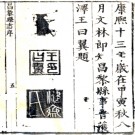 康熙十三年歲在甲寅秋八
月文林郎知昌黎縣事會稽
澤王曰翼題
王曰
翼印
昌黎縣志序
五